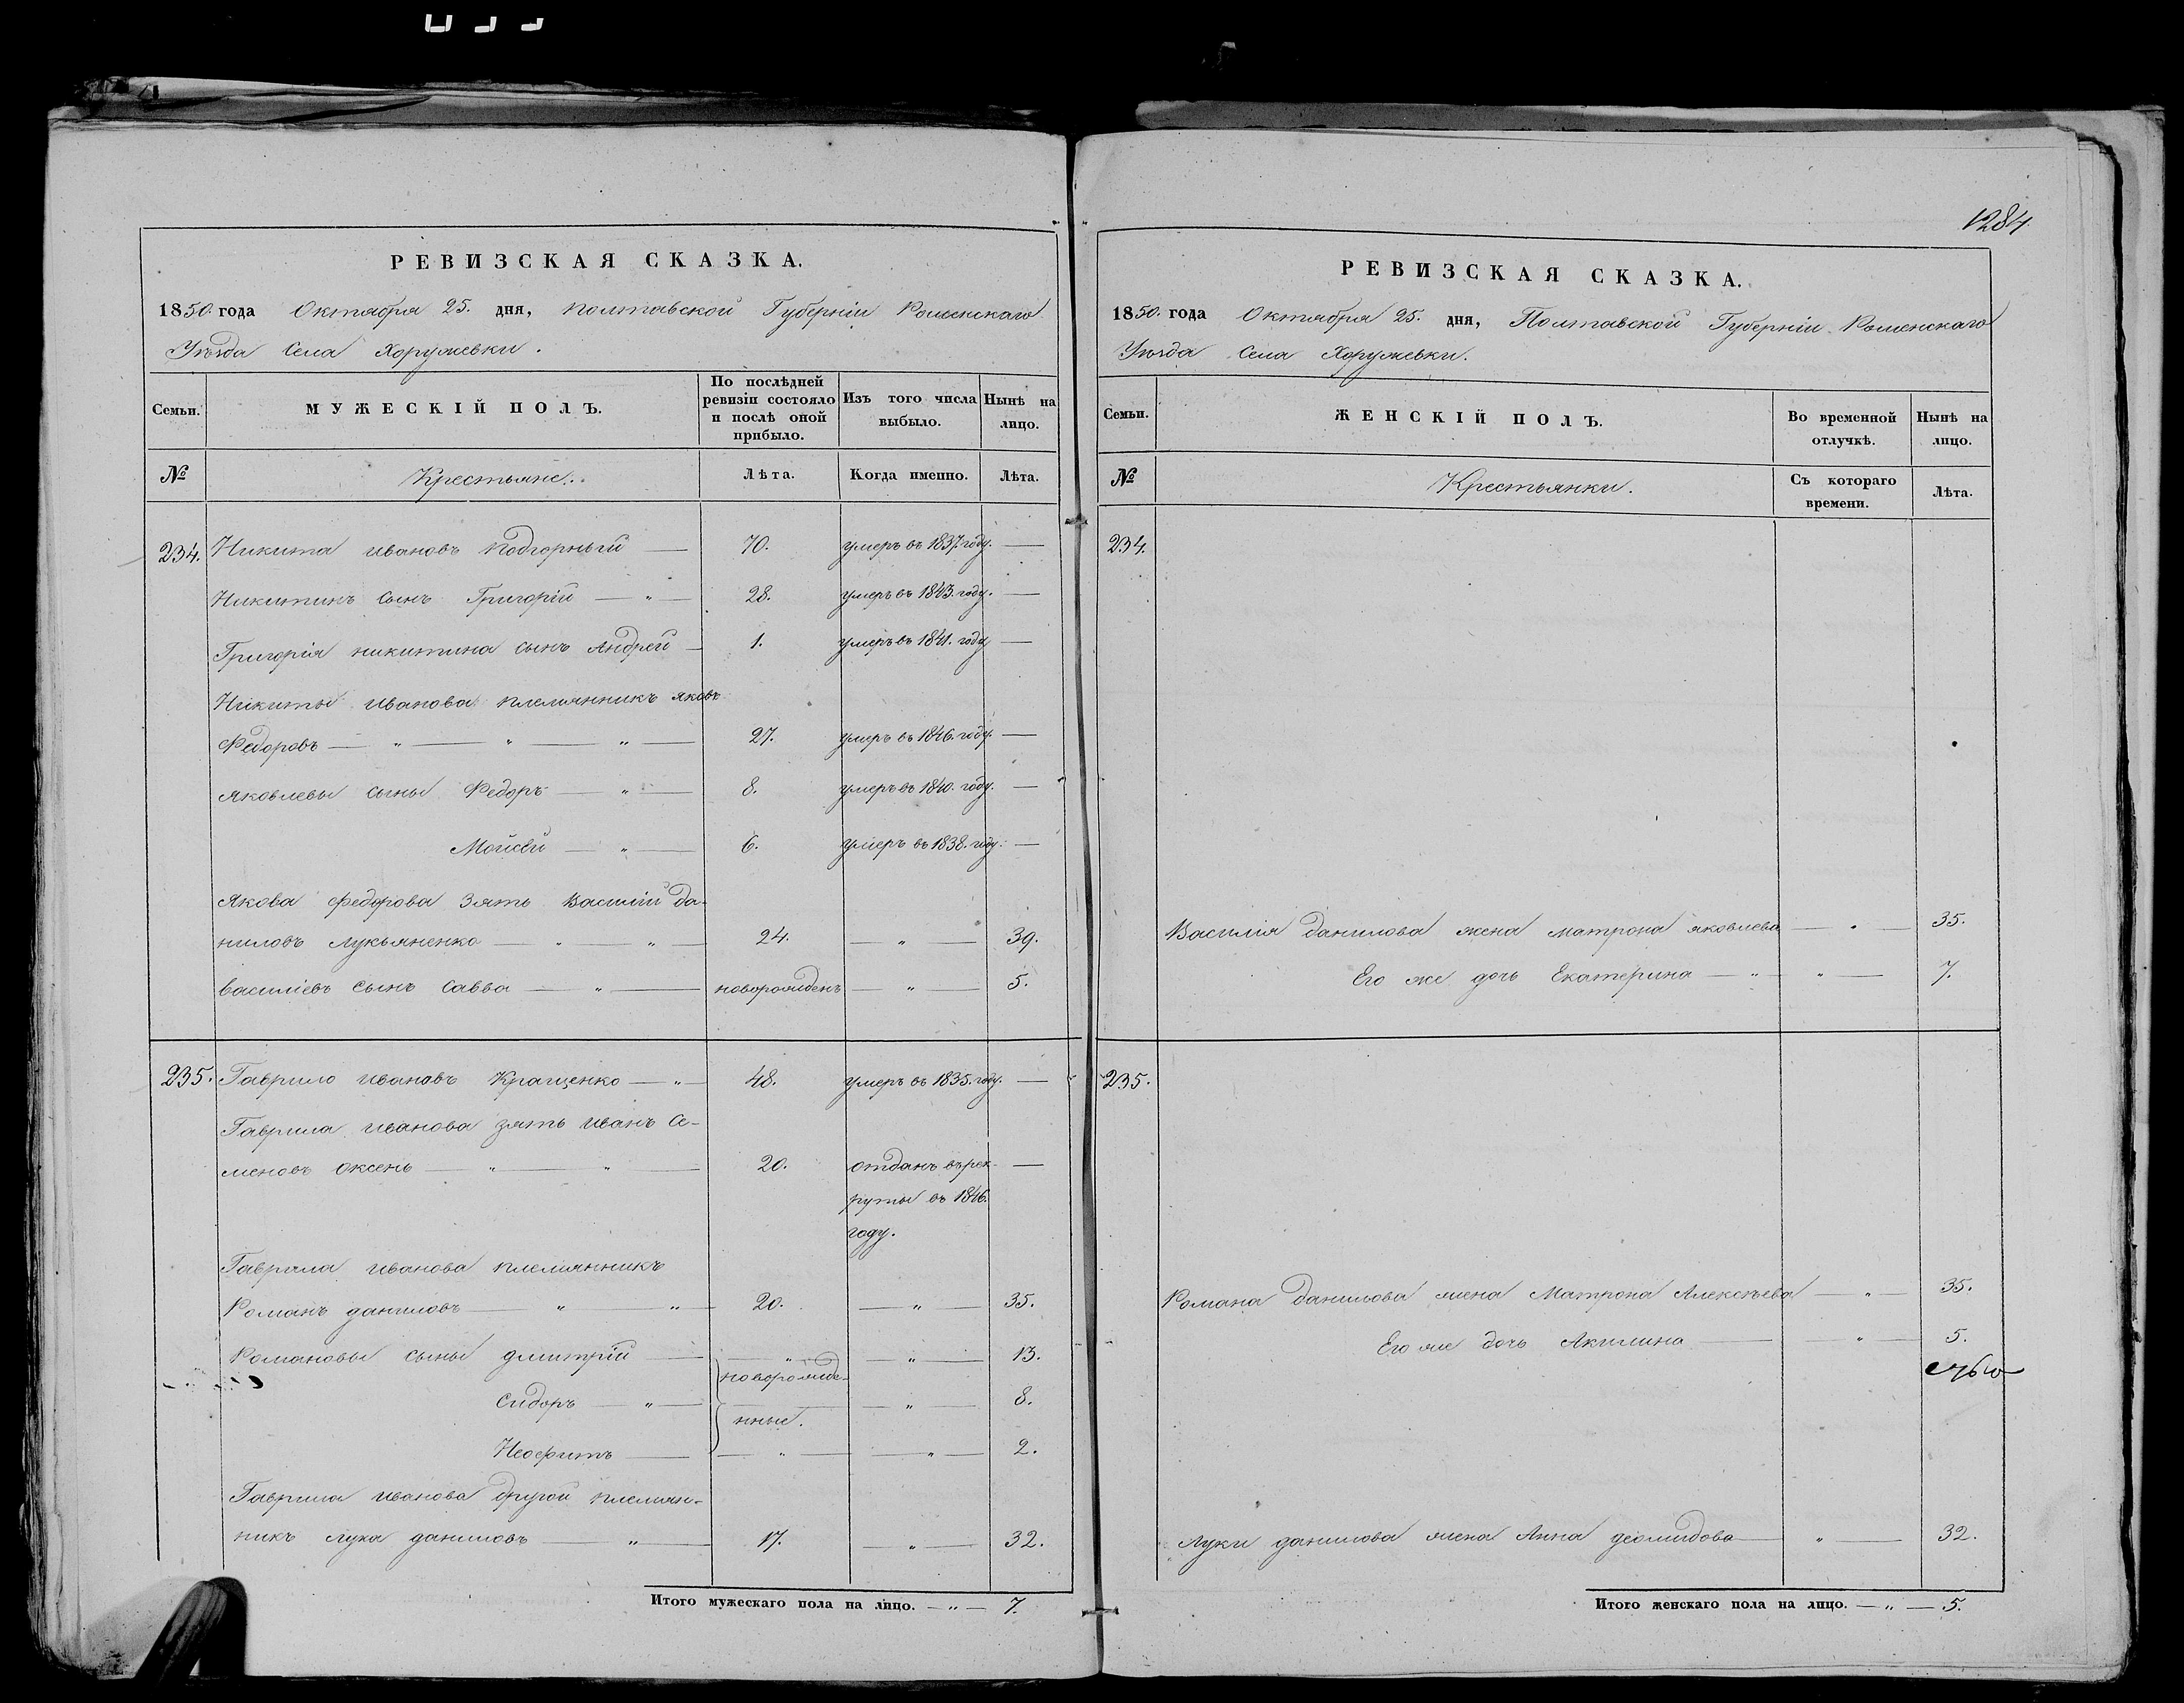 РЕВИЗСКАЯ СКАЗКА.
1850. года Октября 25. дня, Полтавской Губерніи Роменскаго
Уѣзда Села Хоружевки.
Семьи. МУЖЕСКІЙ ПОЛЪ. По послѣдней ревизіи состояло и послѣ оной прибыло. Изъ того числа выбыло. Нынѣ на лицо.
№ Крестьяне. Лѣта. Когда именно. Лѣта.
234. Никита Ивановъ Подгорный — 70. умеръ въ 1837. году. —
Никитинъ сынъ Григорій — „ — 28. умеръ въ 1843. году. —
Григорія Никитина сынъ Андрей — 1. умеръ въ 1841. году —
Никиты Иванова племянникъ Яковъ
Федоровъ — „ — „ — „ — 27. умеръ въ 1846. году. —
Яковлевы сыны Федоръ — „ — 8. умеръ въ 1840. году. —
Мойсей — „ — 6. умеръ въ 1838. году. —
Якова Федорова зять Василій Да-
ниловъ Лукьяненко — „ — „ — 24. — „ — 39.
Василіевъ сынъ Савва — „ — новорожденъ — „ — 5.
235. Гаврило Ивановъ Кращенко — „ — 48. умеръ въ 1835. году. —
Гаврила Иванова зять Иванъ Се-
меновъ Оксень — „ — „ — 20. отданъ въ рек- —
руты въ 1846.
году.
Гаврила Иванова племянникъ
Романъ Даниловъ — „ — „ — 20. — „ — 35.
Романовы сыны Дмитрій — — „ — — „ — 13.
новорожде-
Сидоръ — „ — — „ — 8.
нные.
Неофитъ — — „ — — „ — 2.
Гаврила Иванова другой племян-
никъ Лука Даниловъ — „ — 17. — „ — 32.
Итого мужескаго пола на лицо. — „ — 7.
1284
РЕВИЗСКАЯ СКАЗКА.
1850. года Октября 25. дня, Полтавской Губерніи Роменскаго
Уѣзда Села Хоружевки.
Семьи. ЖЕНСКІЙ ПОЛЪ. Во временной отлучкѣ. Нынѣ на лицо.
№ Крестьянки. Съ котораго времени. Лѣта.
234.
Василія Данилова жена Матрона Яковлева — „ — 35.
Его же дочь Екатерина — „ — „ — 7.
235.
Романа Данилова жена Матрона Алексѣева — „ — 35.
Его же дочь Акилина — „ — 5.
Луки Данилова жена Анна Деомидова — „ — 32.
Итого женскаго пола на лицо. — „ — 5.